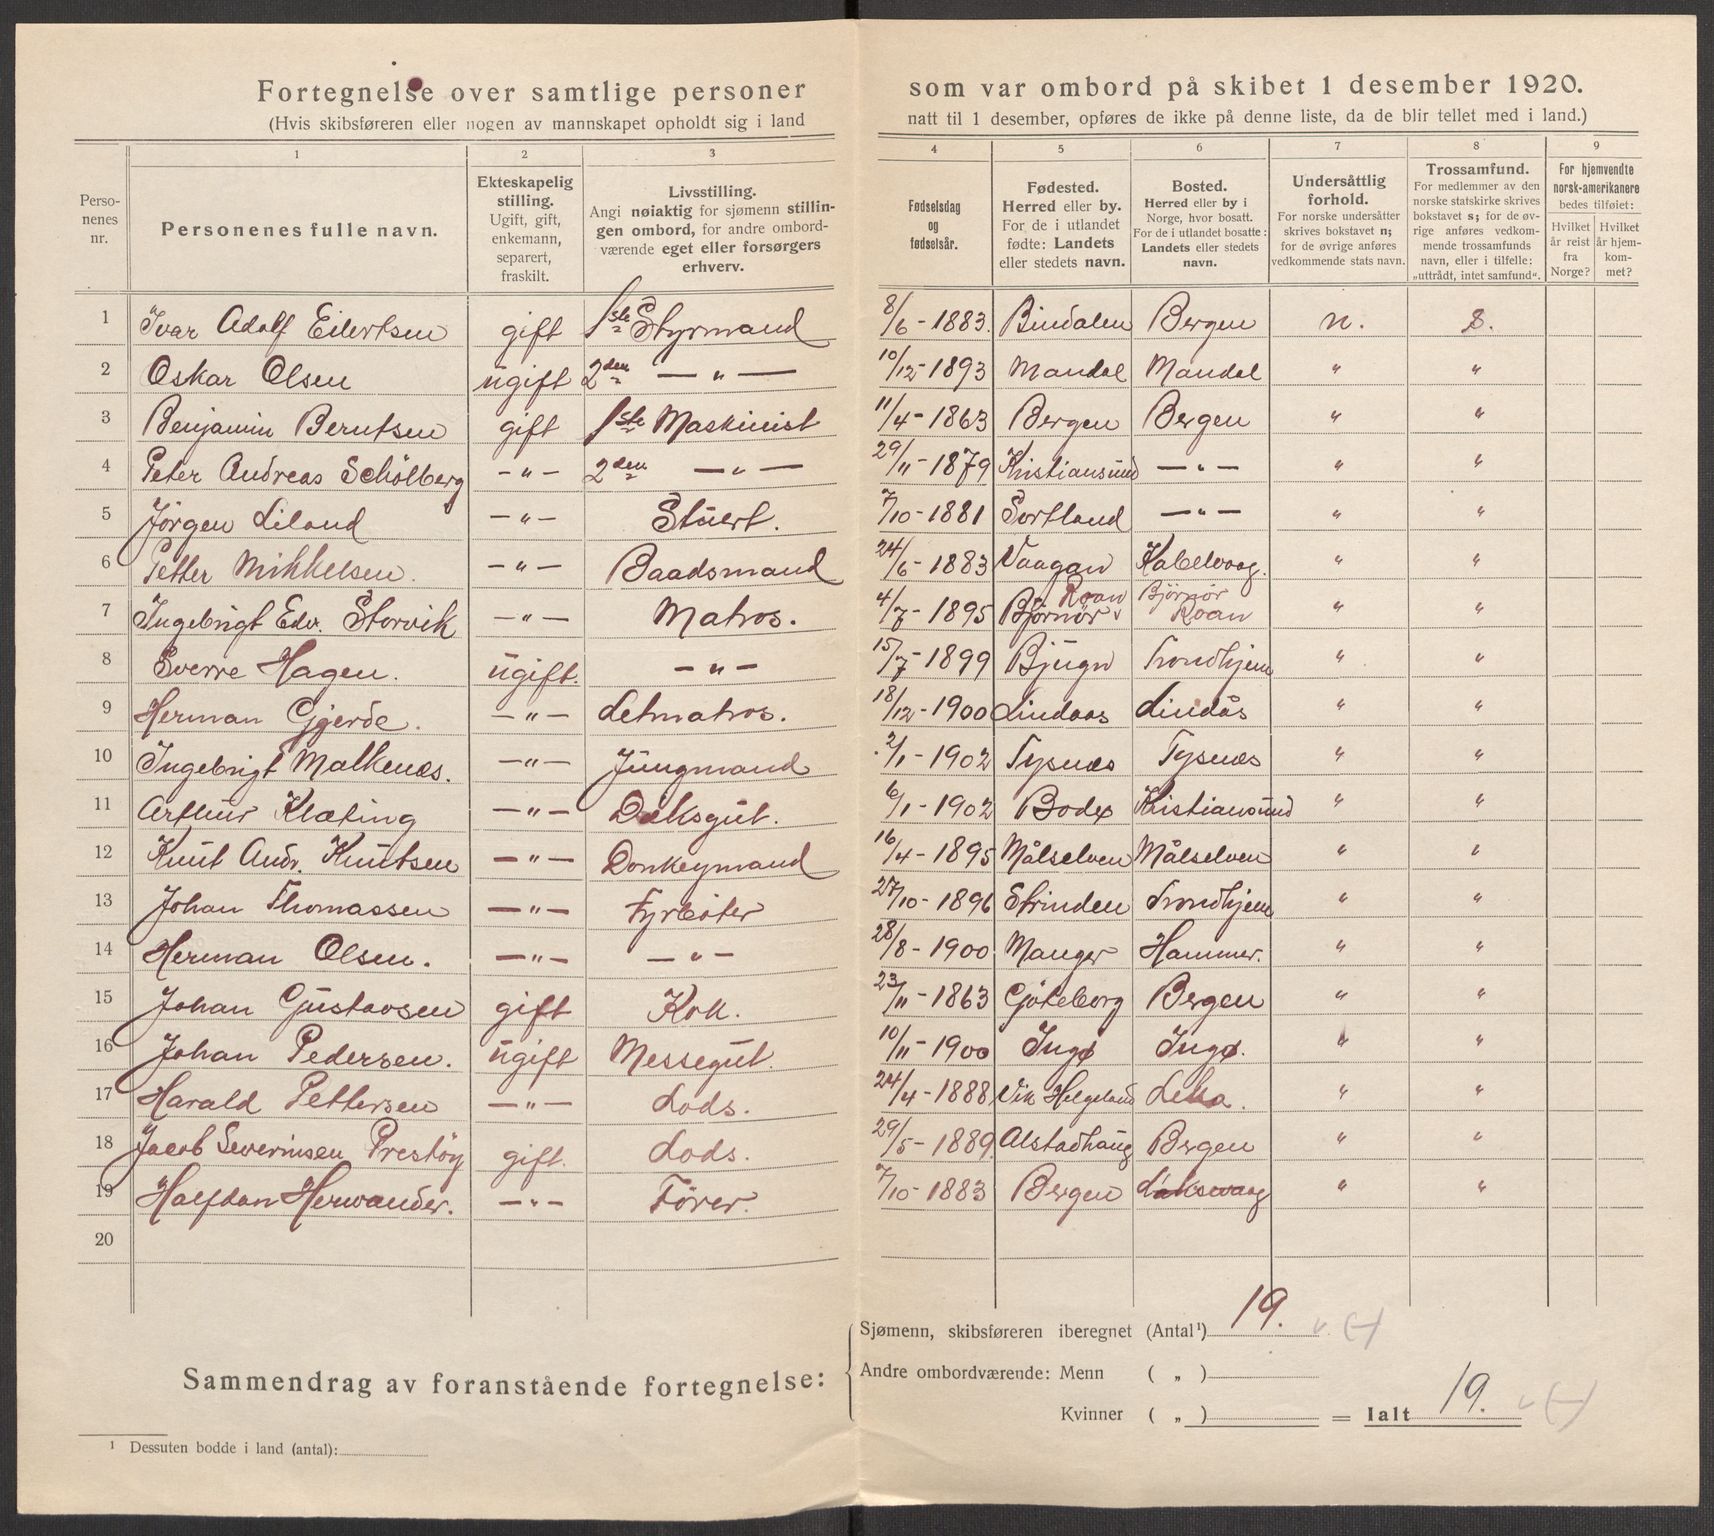 Fortegnelse over samtlige personer som var ombord på skibet 1 desember 1920.
(Hvis skibsføreren eller nogen av mannskapet opholdt sig i land natt til 1 desember, opføres de ikke på denne liste, da de blir tellet med i land.)
1 2 3 4 5 6 7 8 9
Personenes nr.
Personenes fulle navn.
Ekteskapelig stilling. Ugift, gift, enkemann, separert, fraskilt.
Livsstilling. Angi nøiaktig for sjømenn stillingen ombord, for andre ombordværende eget eller forsørgers erhverv.
Fødselsdag og fødselsår.
Fødested. Herred eller by. For de i utlandet fødte: Landets eller stedets navn.
Bosted. Herred eller by i Norge, hvor bosatt. For de i utlandet bosatte: Landets eller stedets navn.
Undersåttlig forhold. For norske undersåtter skrives bokstavet n; for de øvrige anføres vedkommende stats navn.
Trossamfund. For medlemmer av den norske statskirke skrives bokstavet s; for de øvrige anføres vedkommende trossamfunds navn, eller i tilfelle: „uttrådt, intet samfund".
For hjemvendte norsk-amerikanere bedes tilføiet: Hvilket år reist fra Norge? Hvilket år hjemkommet?
1 Ivar Adolf Eilertsen gift 1ste Styrmand 8/6 - 1883. Bindalen Bergen n. s.
2 Oskar Olsen ugift 2den — „ — 10/12 - 1893 Mandal Mandal „ „
3 Benjamin Berntsen gift 1ste Maskinist 11/4 - 1863 Bergen Bergen „ „
4 Peter Andreas Schölberg — „ — 2den — „ — 29/11 - 1879 Kristiansund — „ — „ „
5 Jörgen Liland — „ — Stuert. 7/10 - 1881 Sortland — „ — „ „
6 Petter Mikkelsen. — „ — Baadsmand 24/6 - 1883 Vaagan Kabelvaag. „ „
7 Ingebrigt Edv. Storvik — „ — Matros. 4/7 - 1895 Bjørnør Roan Bjørnør Roan „ „
8 Sverre Hagen. ugift. — „ — 15/7 - 1899 Bjugn Trondhjem „ „
9 Herman Gjerde. — „ — Letmatros. 18/12 - 1900 Lindaas Lindås „ „
10 Ingebrigt Malkenæs. — „ — Jungmand 2/1 - 1902 Tysnæs Tysnæs „ „
11 Arthur Klæting — „ — Dæksgut. 6/1 - 1902 Bodø Kristiansund „ „
12 Knut Andr. Knutsen — „ — Donkeymand 16/4 - 1895 Målselven Målselven „ „
13 Johan Thomassen — „ — Fyrböter 27/10 - 1896 Strinden Trondhjem „ „
14 Herman Olsen. — „ — — „ — 28/8 - 1900 Manger Hammer. „ „
15 Johan Gustavsen gift Kok. 23/11 - 1863 Göteborg Bergen „ „
16 Johan Pedersen. ugift Messegut. 10/11 - 1900 Ingø Ingø. „ „
17 Harald Pettersen — „ — Lods. 24/4 - 1888 Vik Helgeland Leka. „ „
18 Jacob Severinsen Prestöy gift. Lods. 29/5 - 1889. Alstadhaug Bergen „ „
19 Halfdan Herwander. — „ — Förer. 7/10 - 1883 Bergen Laksevaag „ „
20
Sammendrag av foranstående fortegnelse:
Sjømenn, skibsføreren iberegnet (Antal¹) 19.
Andre ombordværende: Menn ( „ )
Kvinner ( „ ) = Ialt 19.
¹ Dessuten bodde i land (antal):